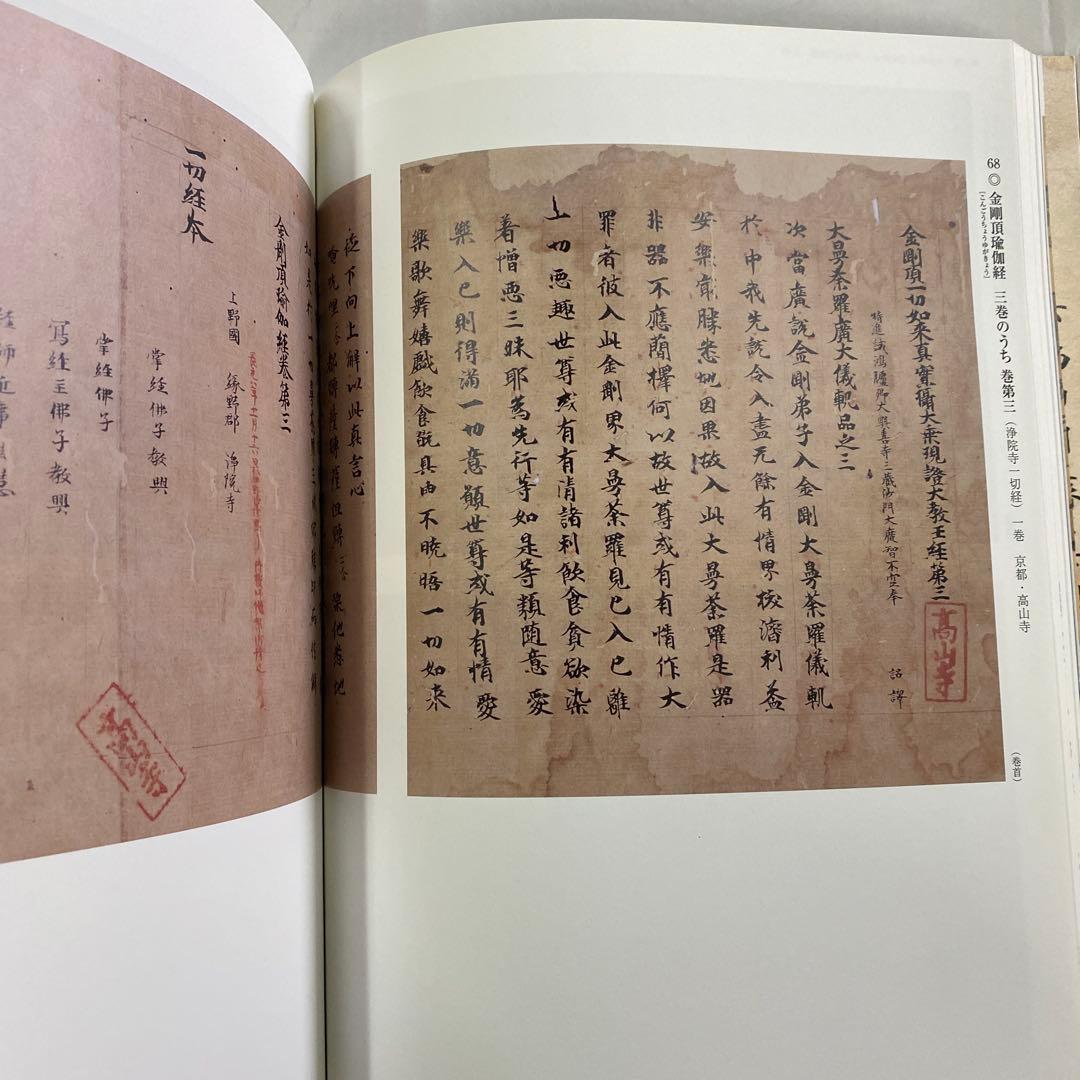 68◎ 金剛頂瑜伽経 三巻のうち 巻第三(浄院寺一切経) 一巻 京都・高山寺
[こんごうちょうゆがきょう]
金剛頂一切如来真實攝大乗現證大教王経第三
高山寺
特進試鴻臚卿大興善寺三蔵沙門大廣智不空奉 詔譯
大曼荼羅廣大儀軌品之三
次當廣説金剛弟子入金剛大曼荼羅儀軌
於中我先説令入盡无餘有情界拔濟利益
安樂㝡勝悉地因果故入此大曼荼羅是器
非器不應蕳擇何以故世尊或有有情作大
罪者彼入此金剛界大曼荼羅見已入已離
一切悪趣世尊或有有情諸利飲食貪欲染
著憎悪三昧耶為先行等如是等類随意愛
樂入已則得滿一切意願世尊或有有情愛
樂歌舞嬉戲飲食翫具由不曉晤一切如来
(巻首)
従下向上解以此真言心
金剛頂瑜伽経巻第三
上野國 緑野郡 浄院寺
一切経本
掌経佛子教興
掌経佛子
寫経主佛子教興
高山寺